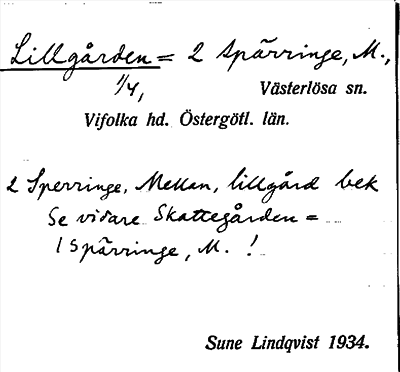 Lillgården = 2 Spärringe, M.,
1/4,
Västerlösa sn.
Vifolka hd. Östergötl. län.
2 Sperringe, Mellan, lillgård bek
Se vidare Skattegården =
1 Spärringe, M. !
Sune Lindqvist 1934.